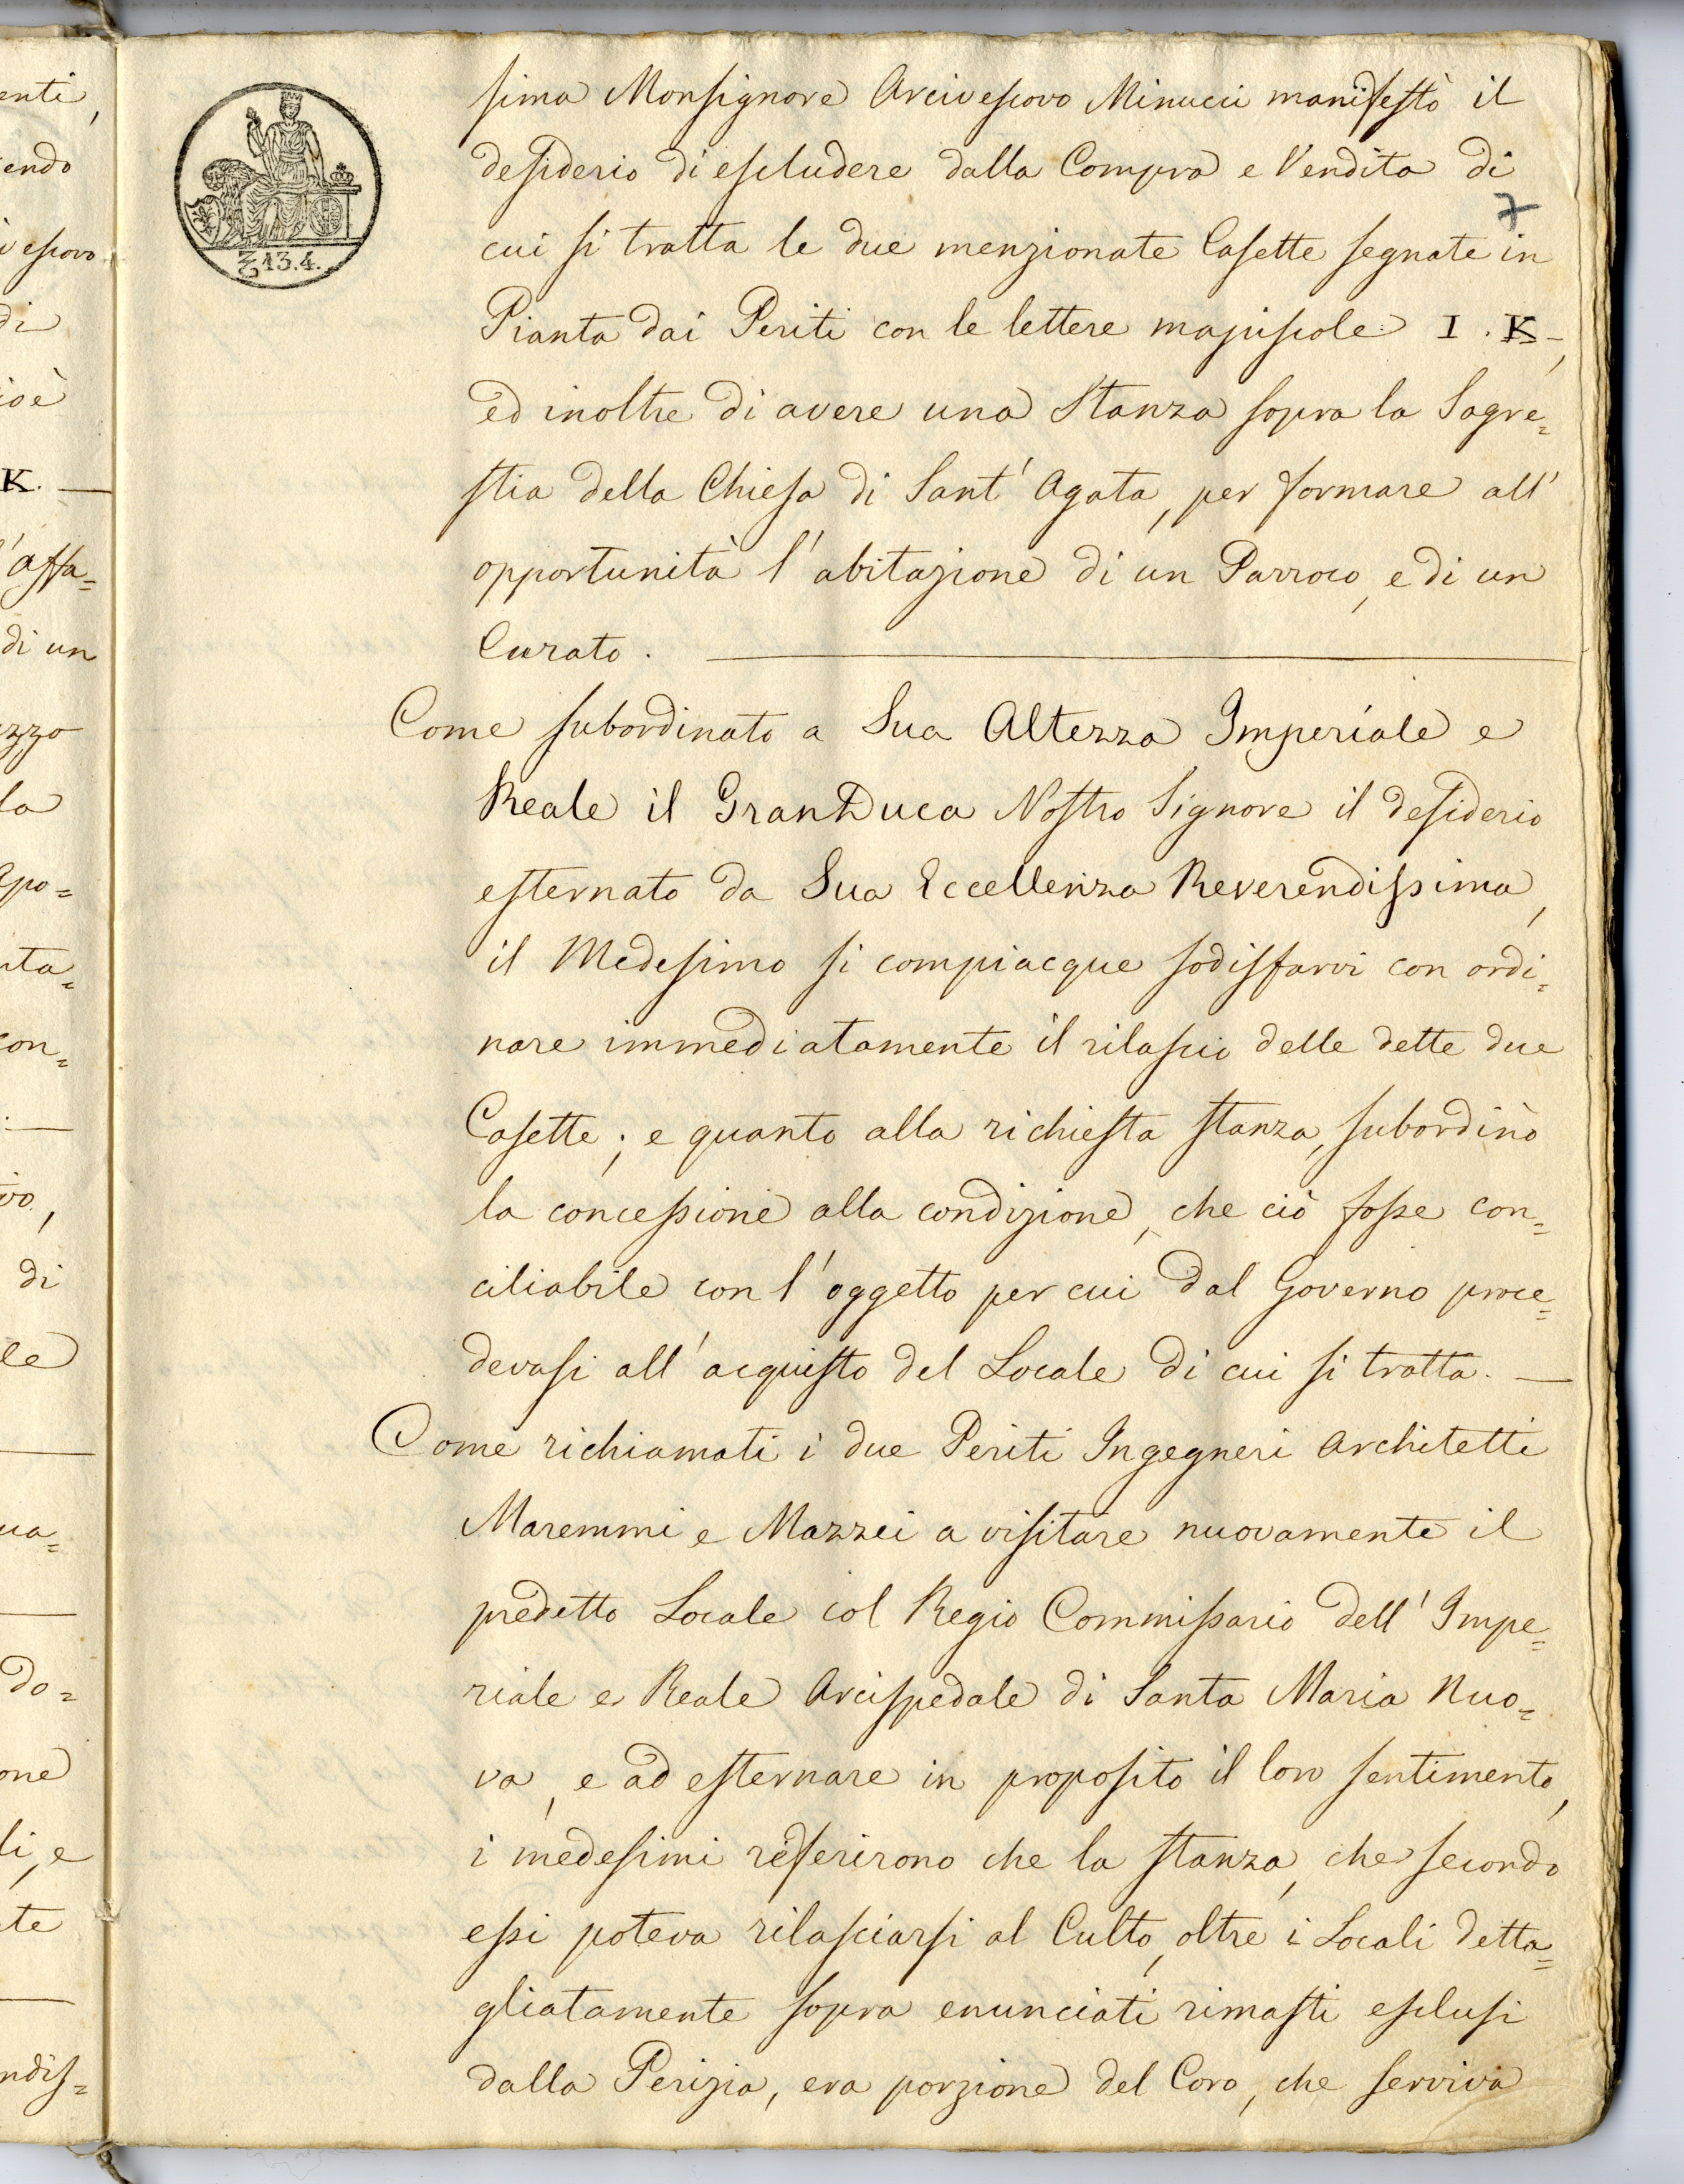 enti,
endo
ivescovo
di
ioè
K. —
l'affa=
di un
ezzo
la
Apo=
nta=
con=
vo,
di
le
ua=
do=
one
li, e
te
ndis=
₤ 13.4.
7
sima Monsignore Arcivescovo Minucci manifestò il
desiderio di escludere dalla Compra e Vendita di
cui si tratta le due menzionate Casette segnate in
Pianta dai Periti con le lettere majuscole I. K-,
ed inoltre di avere una Stanza sopra la Sagre=
stia della Chiesa di Sant' Agata, per formare all'
opportunità l'abitazione di un Parroco, e di un
Curato. —
Come subordinato a Sua Altezza Imperiale e
Reale il GranDuca Nostro Signore il desiderio
esternato da Sua Eccellenza Reverendissima,
il Medesimo si compiacque sodisfarvi con ordi=
nare immediatamente il rilascio delle dette due
Casette; e quanto alla richiesta stanza, subordinò
la concessione alla condizione, che ciò fosse con=
ciliabile con l'oggetto per cui dal Governo proce=
devasi all'acquisto del Locale di cui si tratta. —
Come richiamati i due Periti Ingegneri Architetti
Maremmi e Mazzei a visitare nuovamente il
predetto Locale col Regio Commissario dell' Impe=
riale e Reale Arcispedale di Santa Maria Nuo=
va, e ad esternare in proposito il loro sentimento,
i medesimi referirono che la stanza, che secondo
essi poteva rilasciarsi al Culto, oltre i Locali detta=
gliatamente sopra enunciati rimasti esclusi
dalla Perizia, era porzione del Coro, che serviva